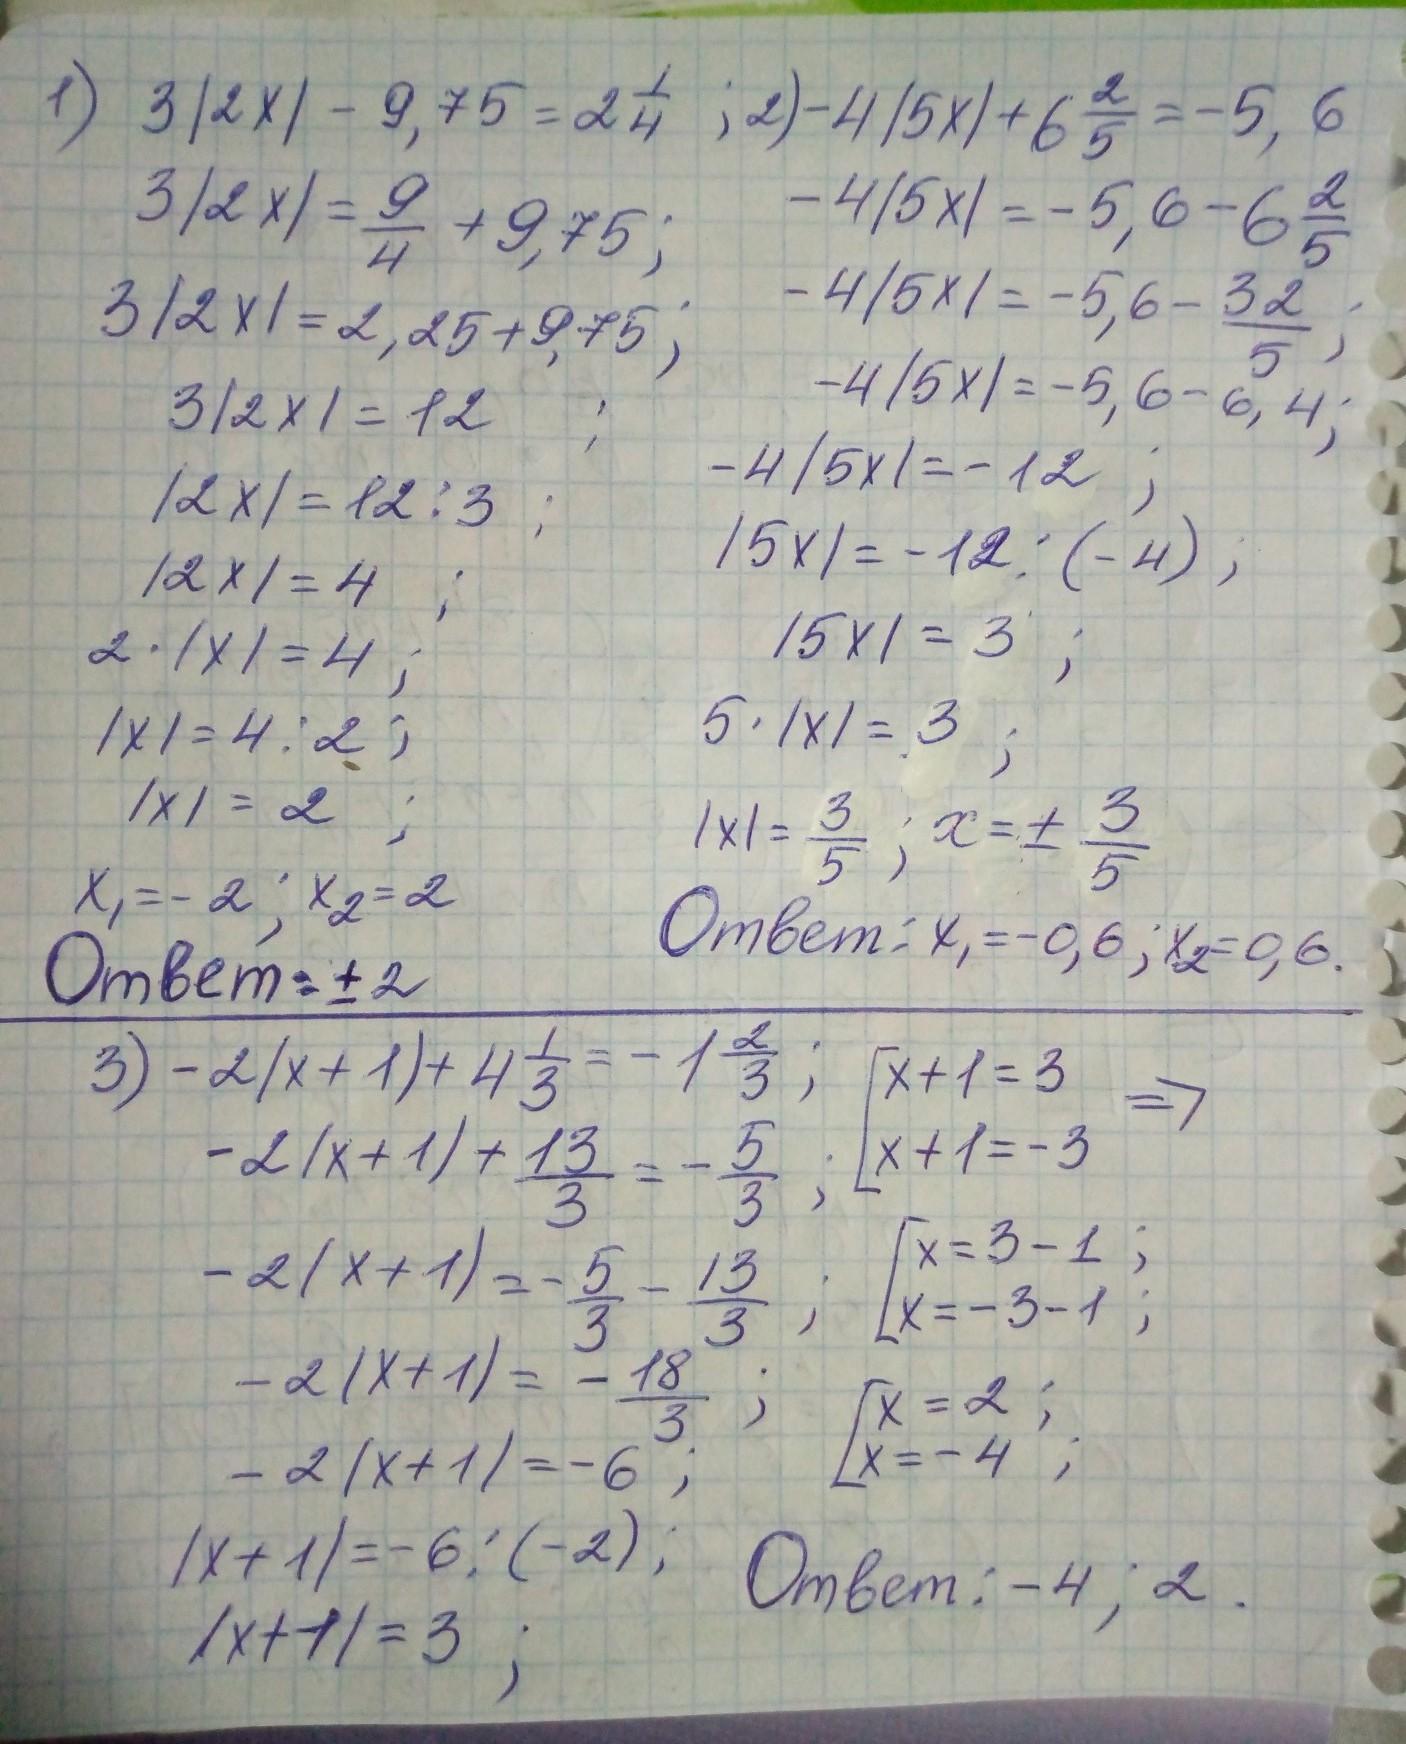 1) 3|2x| - 9,75 = 2 1/4 ;
3|2x| = 9/4 + 9,75 ;
3|2x| = 2,25 + 9,75 ;
3|2x| = 12 ;
|2x| = 12 : 3 ;
|2x| = 4 ;
2 · |x| = 4 ;
|x| = 4 : 2 ;
|x| = 2 ;
x₁ = -2 ; x₂ = 2
Ответ: ±2
2) -4|5x| + 6 2/5 = -5,6
-4|5x| = -5,6 - 6 2/5
-4|5x| = -5,6 - 32/5 ;
-4|5x| = -5,6 - 6,4 ;
-4|5x| = -12 ;
|5x| = -12 : (-4) ;
|5x| = 3 ;
5 · |x| = 3 ;
|x| = 3/5 ; x = ± 3/5
Ответ: x₁ = -0,6 ; x₂ = 0,6.
3) -2|x+1| + 4 1/3 = -1 2/3 ;
-2|x+1| + 13/3 = -5/3 ;
-2|x+1| = -5/3 - 13/3 ;
-2|x+1| = -18/3 ;
-2|x+1| = -6 ;
|x+1| = -6 : (-2) ;
|x+1| = 3 ;
[x+1 = 3 =>
x+1 = -3
[x = 3-1 ;
x = -3-1 ;
[x = 2 ;
x = -4 ;
Ответ: -4 ; 2 .